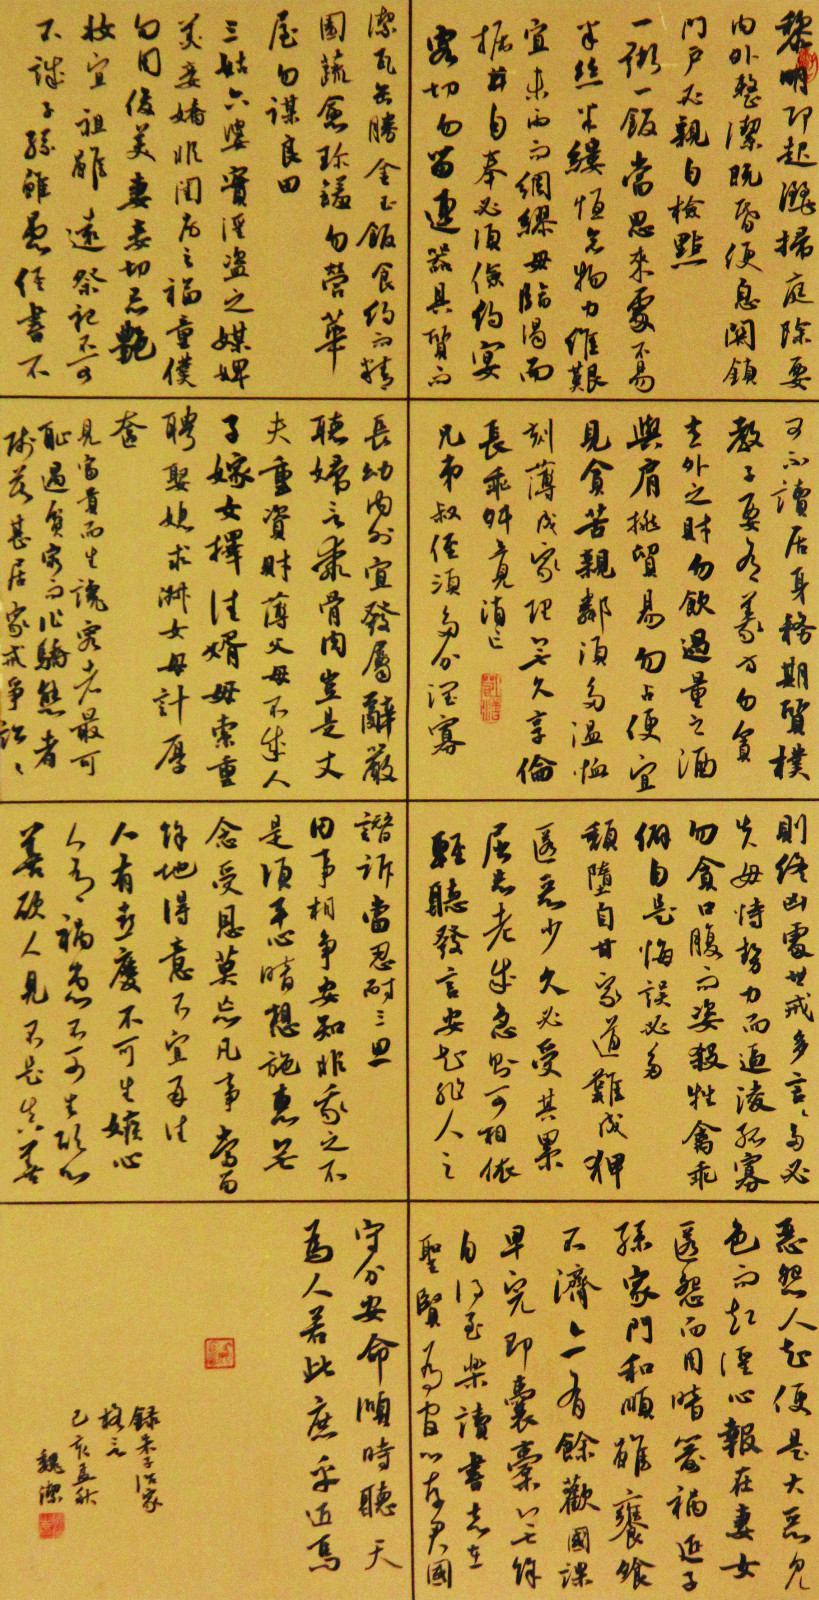 黎明即起灑掃庭除要
内外整潔既昏便息關鎖
門户必親自檢點
一粥一飯當思來處不易
半絲半縷恒念物力維艱
宜未雨而綢繆毋臨渴而
掘井自奉必須儉約宴
客切勿留連器具質而
潔瓦缶勝金玉飯食約而精
園蔬愈珍饈勿營華
屋勿謀良田
三姑六婆實淫盗之媒婢
美妾嬌非閨房之福童僕
勿用俊美妻妾切忌艷
妝宜祖雖遠祭祀不可
不誠子孫雖愚經書不
可不讀居身務期質樸
教子要有義方勿貪
意外之財勿飲過量之酒
與肩挑貿易勿占便宜
見貧苦親鄰須多温恤
刻薄成家理無久享倫
長乖舛立見消亡
兄弟叔侄須多分潤寡
長幼内外宜發屬辭嚴
聽婦言乖骨肉豈是丈
夫重資財薄父母不成人
子嫁女擇佳婿毋索重
聘娶媳求淑女毋計厚
奩
見富貴而生讒容者最可
耻遇貧窮而作驕態者
賤莫甚居家戒争訟訟
則終凶處世戒多言言多必
失毋恃勢力而逼凌孤寡
勿貪口腹而恣殺牲禽乖
僻自是悔誤必多
頽墮自甘家道難成狎
匿惡少久必受其累
屈志老成急則可相依
輕聽發言安知非人之
譖訴當忍耐三思
因事相争安知非我之不
是須平心暗想施惠無
念受恩莫忘凡事當留
餘地得意不宜再往
人有喜慶不可生嫉心
人有禍患不可生欣心
善欲人見不是真善
惡恐人知便是大惡見
色而起淫心報在妻女
匿怨而用暗箭禍延子
孫家門和順雖饔飧
不濟亦有餘歡國課
早完即囊橐無餘
自得至樂讀書志在
聖賢爲官心存君國
守分安命順時聽天
爲人若此庶乎近焉
録朱子治家
格言
己亥孟秋
魏潔